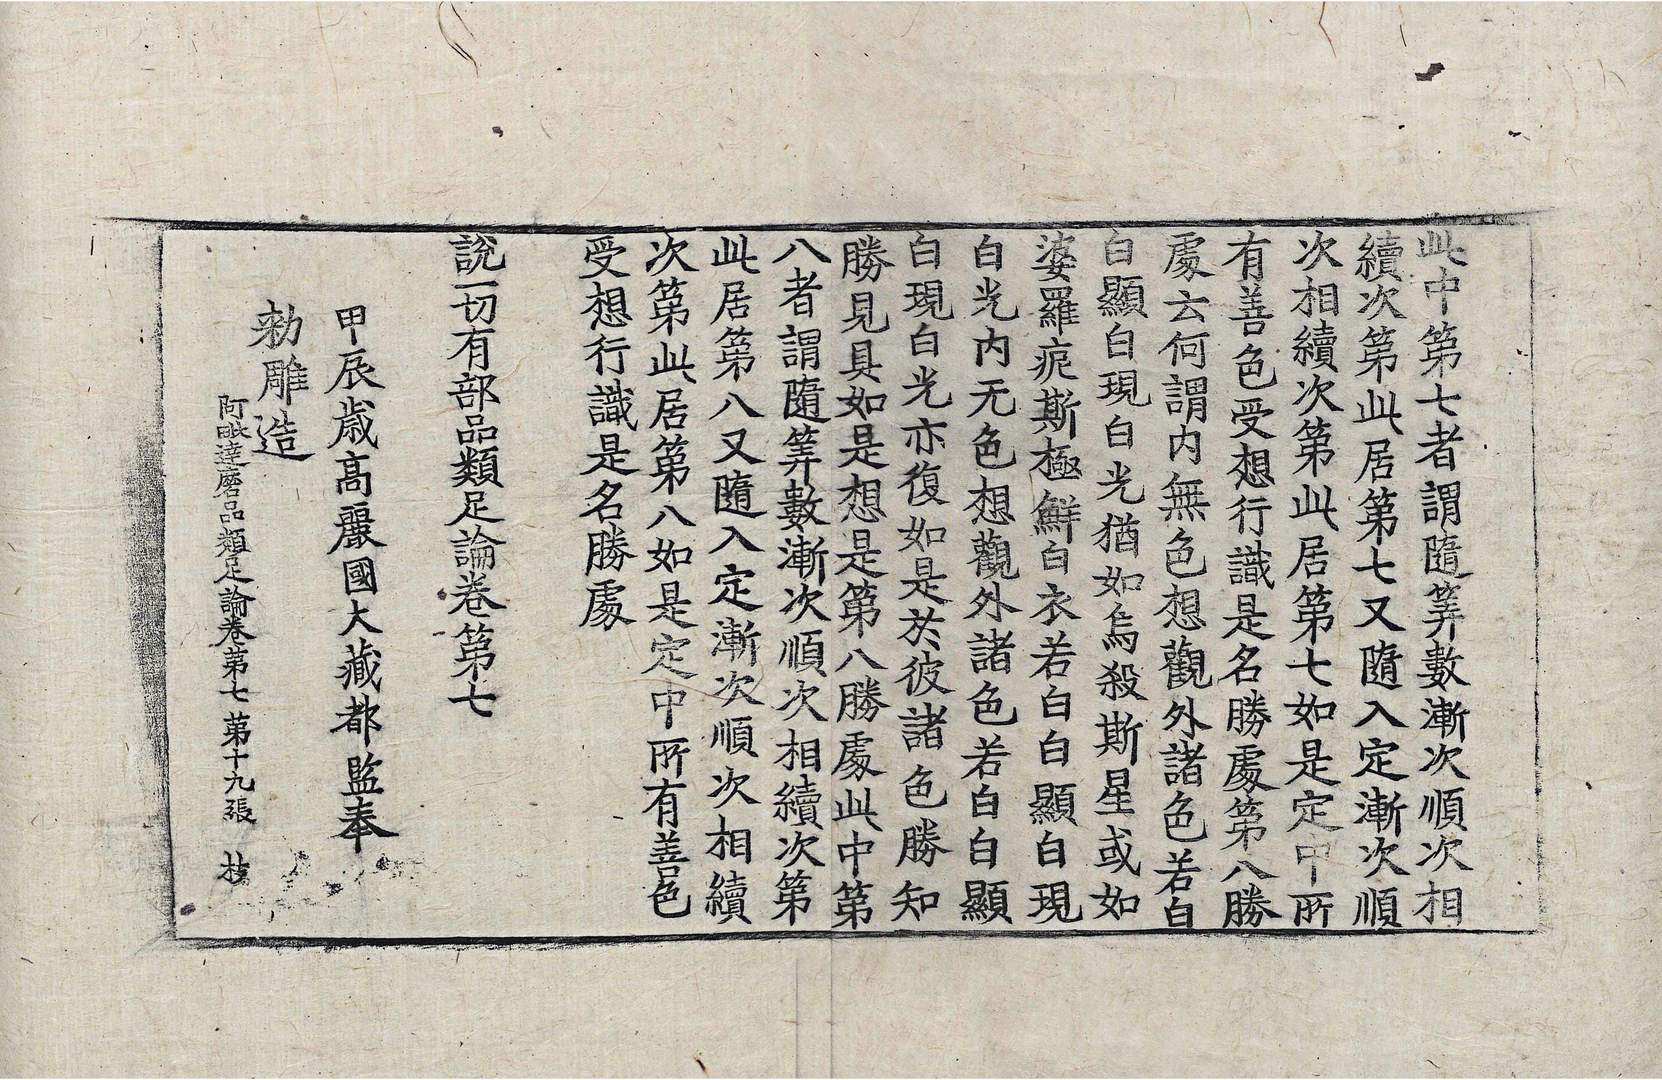 此中第七者謂隨筭數漸次順次相
續次第此居第七又隨入定漸次順
次相續次第此居第七如是定中所
有善色受想行識是名勝處第八勝
處云何謂内無色想觀外諸色若白
白顯白現白光猶如烏殺斯星或如
婆羅痆斯極鮮白衣若白白顯白現
白光内无色想觀外諸色若白白顯
白現白光亦復如是於彼諸色勝知
勝見具如是想是第八勝處此中第
八者謂隨筭數漸次順次相續次第
此居第八又隨入定漸次順次相續
次第此居第八如是定中所有善色
受想行識是名勝處
說一切有部品類足論卷第七
甲辰歳高麗國大藏都監奉
勅雕造
阿毗達磨品類足論卷第七 第十九張 技